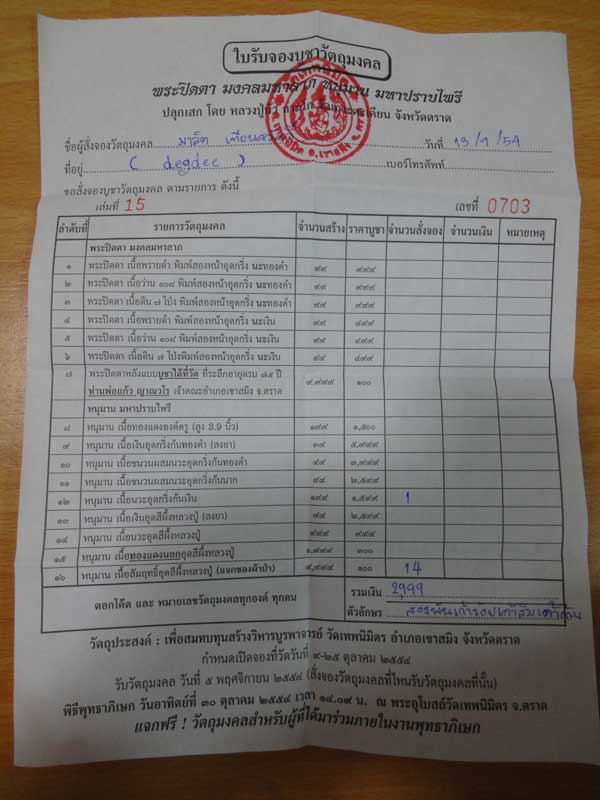 ใบรับจองบูชาวัตถุมงคล
พระปิดตา มงคลมหาลาภ หนุมาน มหาปราบไพรี
ปลุกเสก โดย หลวงปู่บัว จังหวัดตราด
ชื่อผู้สั่งจองวัตถุมงคล มาลิต วันที่ 13/9/54
ที่อยู่ ( degdee ) เบอร์โทรศัพท์
ขอสั่งจองบูชาวัตถุมงคล ตามรายการ ดังนี้
เล่มที่ 15 เลขที่ 0703
ลำดับที่ รายการวัตถุมงคล จำนวนสร้าง ราคาบูชา จำนวนสั่งจอง จำนวนเงิน หมายเหตุ
พระปิดตา มงคลมหาลาภ
๑ พระปิดตา เนื้อพรายดำ พิมพ์สองหน้าอุดกริ่ง นะทองคำ ๙๙ ๙๙๙
๒ พระปิดตา เนื้อว่าน ๑๐๘ พิมพ์สองหน้าอุดกริ่ง นะทองคำ ๙๙ ๙๙๙
๓ พระปิดตา เนื้อดิน ๗ โป่ง พิมพ์สองหน้าอุดกริ่ง นะทองคำ ๙๙ ๙๙๙
๔ พระปิดตา เนื้อพรายดำ พิมพ์สองหน้าอุดกริ่ง นะเงิน ๙๙ ๔๙๙
๕ พระปิดตา เนื้อว่าน ๑๐๘ พิมพ์สองหน้าอุดกริ่ง นะเงิน ๙๙ ๔๙๙
๖ พระปิดตา เนื้อดิน ๗ โป่งพิมพ์สองหน้าอุดกริ่ง นะเงิน ๙๙ ๔๙๙
๗ พระปิดตาหลังแบบบูชาไต้ที่วัด ที่ระลึกอายุครบ ๗๕ ปี ๙,๙๙๙ ๑๐๐
ท่านพ่อแก้ว ญาณวโร เจ้าคณะอำเภอเขาสมิง จ.ตราด
หนุมาน มหาปราบไพรี
๘ หนุมาน เนื้อทองแดงองค์ครู (สูง 3.9 นิ้ว) ๑๙๙ ๑,๕๐๐
๙ หนุมาน เนื้อเงินอุดกริ่งก้นทองคำ (ลงยา) ๓๙ ๕,๙๙๙
๑๐ หนุมาน เนื้อชนวนผสมนวะอุดกริ่งก้นทองคำ ๙๙ ๓,๙๙๙
๑๑ หนุมาน เนื้อชนวนผสมนวะอุดกริ่งก้นนาก ๙๙ ๒,๕๙๙
๑๒ หนุมาน เนื้อนวะอุดกริ่งก้นเงิน ๑๙๙ ๑,๕๙๙ 1
๑๓ หนุมาน เนื้อเงินอุดสีผึ้งหลวงปู่ (ลงยา) ๙๙ ๒,๕๙๙
๑๔ หนุมาน เนื้อนวะอุดสีผึ้งหลวงปู่ ๙๙๙ ๙๙๙
๑๕ หนุมาน เนื้อทองแดงนอกอุดสีผึ้งหลวงปู่ ๑,๙๙๙ ๓๐๐
๑๖ หนุมาน เนื้อสัมฤทธิ์อุดสีผึ้งหลวงปู่ (แจกซองผ้าป่า) ๙,๙๙๙ ๑๐๐ 14
ตอกโค๊ต และ หมายเลขวัตถุมงคลทุกองค์ ทุกตน รวมเงิน 2,999
ตัวอักษร สองพันเก้าร้อยเก้าสิบเก้าถ้วน
วัตถุประสงค์ : เพื่อสมทบทุนสร้างวิหารบูรพาจารย์ วัดเทพนิมิตร อำเภอเขาสมิง จังหวัดตราด
กำหนดเปิดจองที่วัดวันที่ ๙-๒๕ ตุลาคม ๒๕๕๔
รับวัตถุมงคล วันที่ ๕ พฤศจิกายน ๒๕๕๔ (สั่งจองวัตถุมงคลที่ไหนรับวัตถุมงคลที่นั้น)
พิธีพุทธาภิเษก วันอาทิตย์ที่ ๓๐ ตุลาคม ๒๕๕๔ เวลา ๑๔.๐๙ น. ณ พระอุโบสถ์วัดเทพนิมิตร จ.ตราด
แจกฟรี ! วัตถุมงคลสำหรับผู้ที่ได้มาร่วมภายในงานพุทธาภิเษก